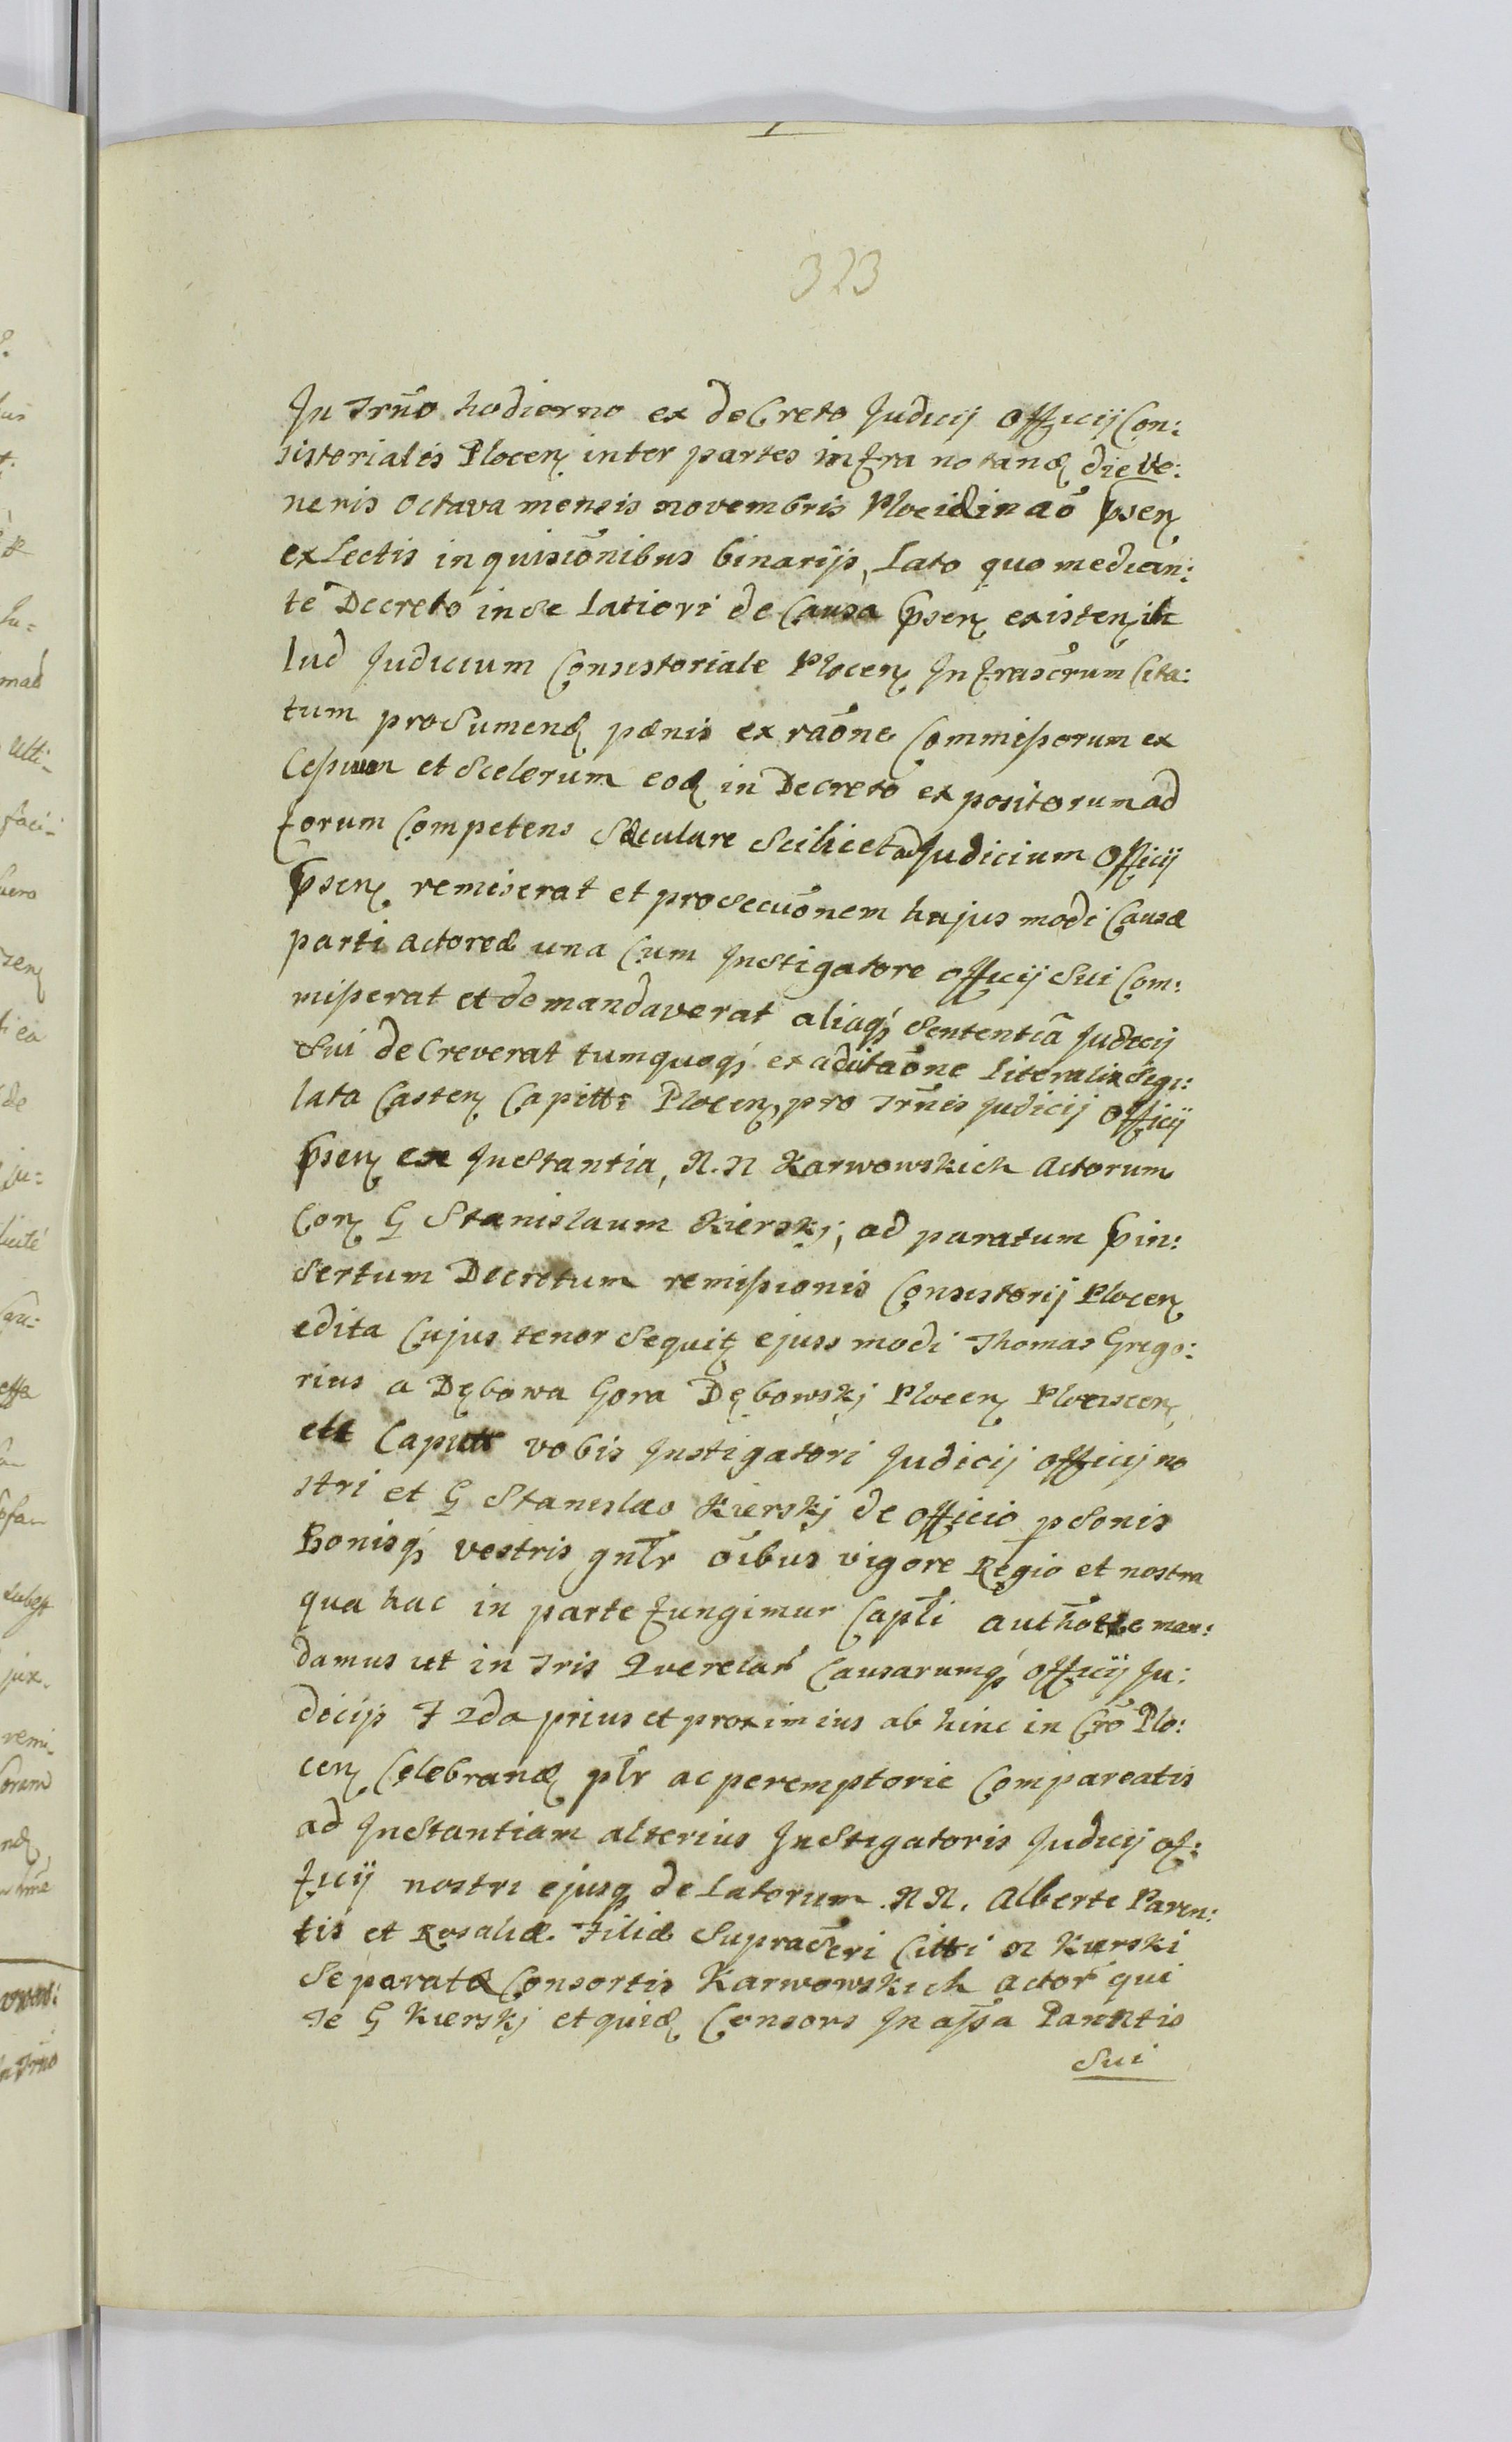 323
In Trno hodierno ex deCreto Judicij Officij Con:
sistorialis Plocen inter partes infra notand die Ve:
neris Octava mensis novembris Plocidin ao psen
ex Lectis inquisionibus binarijs, Lato quo median:
te Decreto in se latiori de Causa psen existen il
lud Judicium Consistoriale Plocen Infrascrum Cita:
tum pro Sumend pænis ex raone Commissorum ex
Cessuum et Scelerum eod in Decreto expositorum ad
forum Competens Sæculare Scilicet ad Judicium Officij
psen remiserat et prosecuonem hujus modi Causæ
parti actoreæ una Cum Instigatore officij Sui Com:
miserat et demandaverat aliaq Sententia Judicij
Sui deCreverat tumquoq ex aditaone Literali Sigi:
lata Casten Capitti Plocen pro Trnis Judicij Officij
psen ex Instantia, N. N Karwowskich Actorum
Con G Stanislaum Kierskj, ad paratum pin:
Sertum Decretum remissionis Consistorij Plocen
edita Cujus tenor Sequit ejuss modi Thomas Grego:
rius a Dębowa Gora Dębowskj Plocen Ploeiscen
ett Caputt vobis Instigatori Judicij officij no
stri et G Stanislao Kierskj de officio psonis
Bonisq vestris gnlr oibus vigore Regio et nostra
qua hac in parte fungimur Capli authotte man:
damus ut in Tris Querelar Causarumq officij Ju:
dicijs F 2da prius et proximius ab hinc in Cro Plo:
cen Celebrand plr ac peremptorie Compareatis
ad Instantiam alterius Instigatoris Judicij of:
ficij nostri ejusq delatorum N N. Alberti Paren:
tis et Rosaliæ Filiæ Supradsri Citti N Kierski
Separatæ Consortis Karwowskich actor qui
Te G Kierskj et quid Consors In assa Panntis
Sui